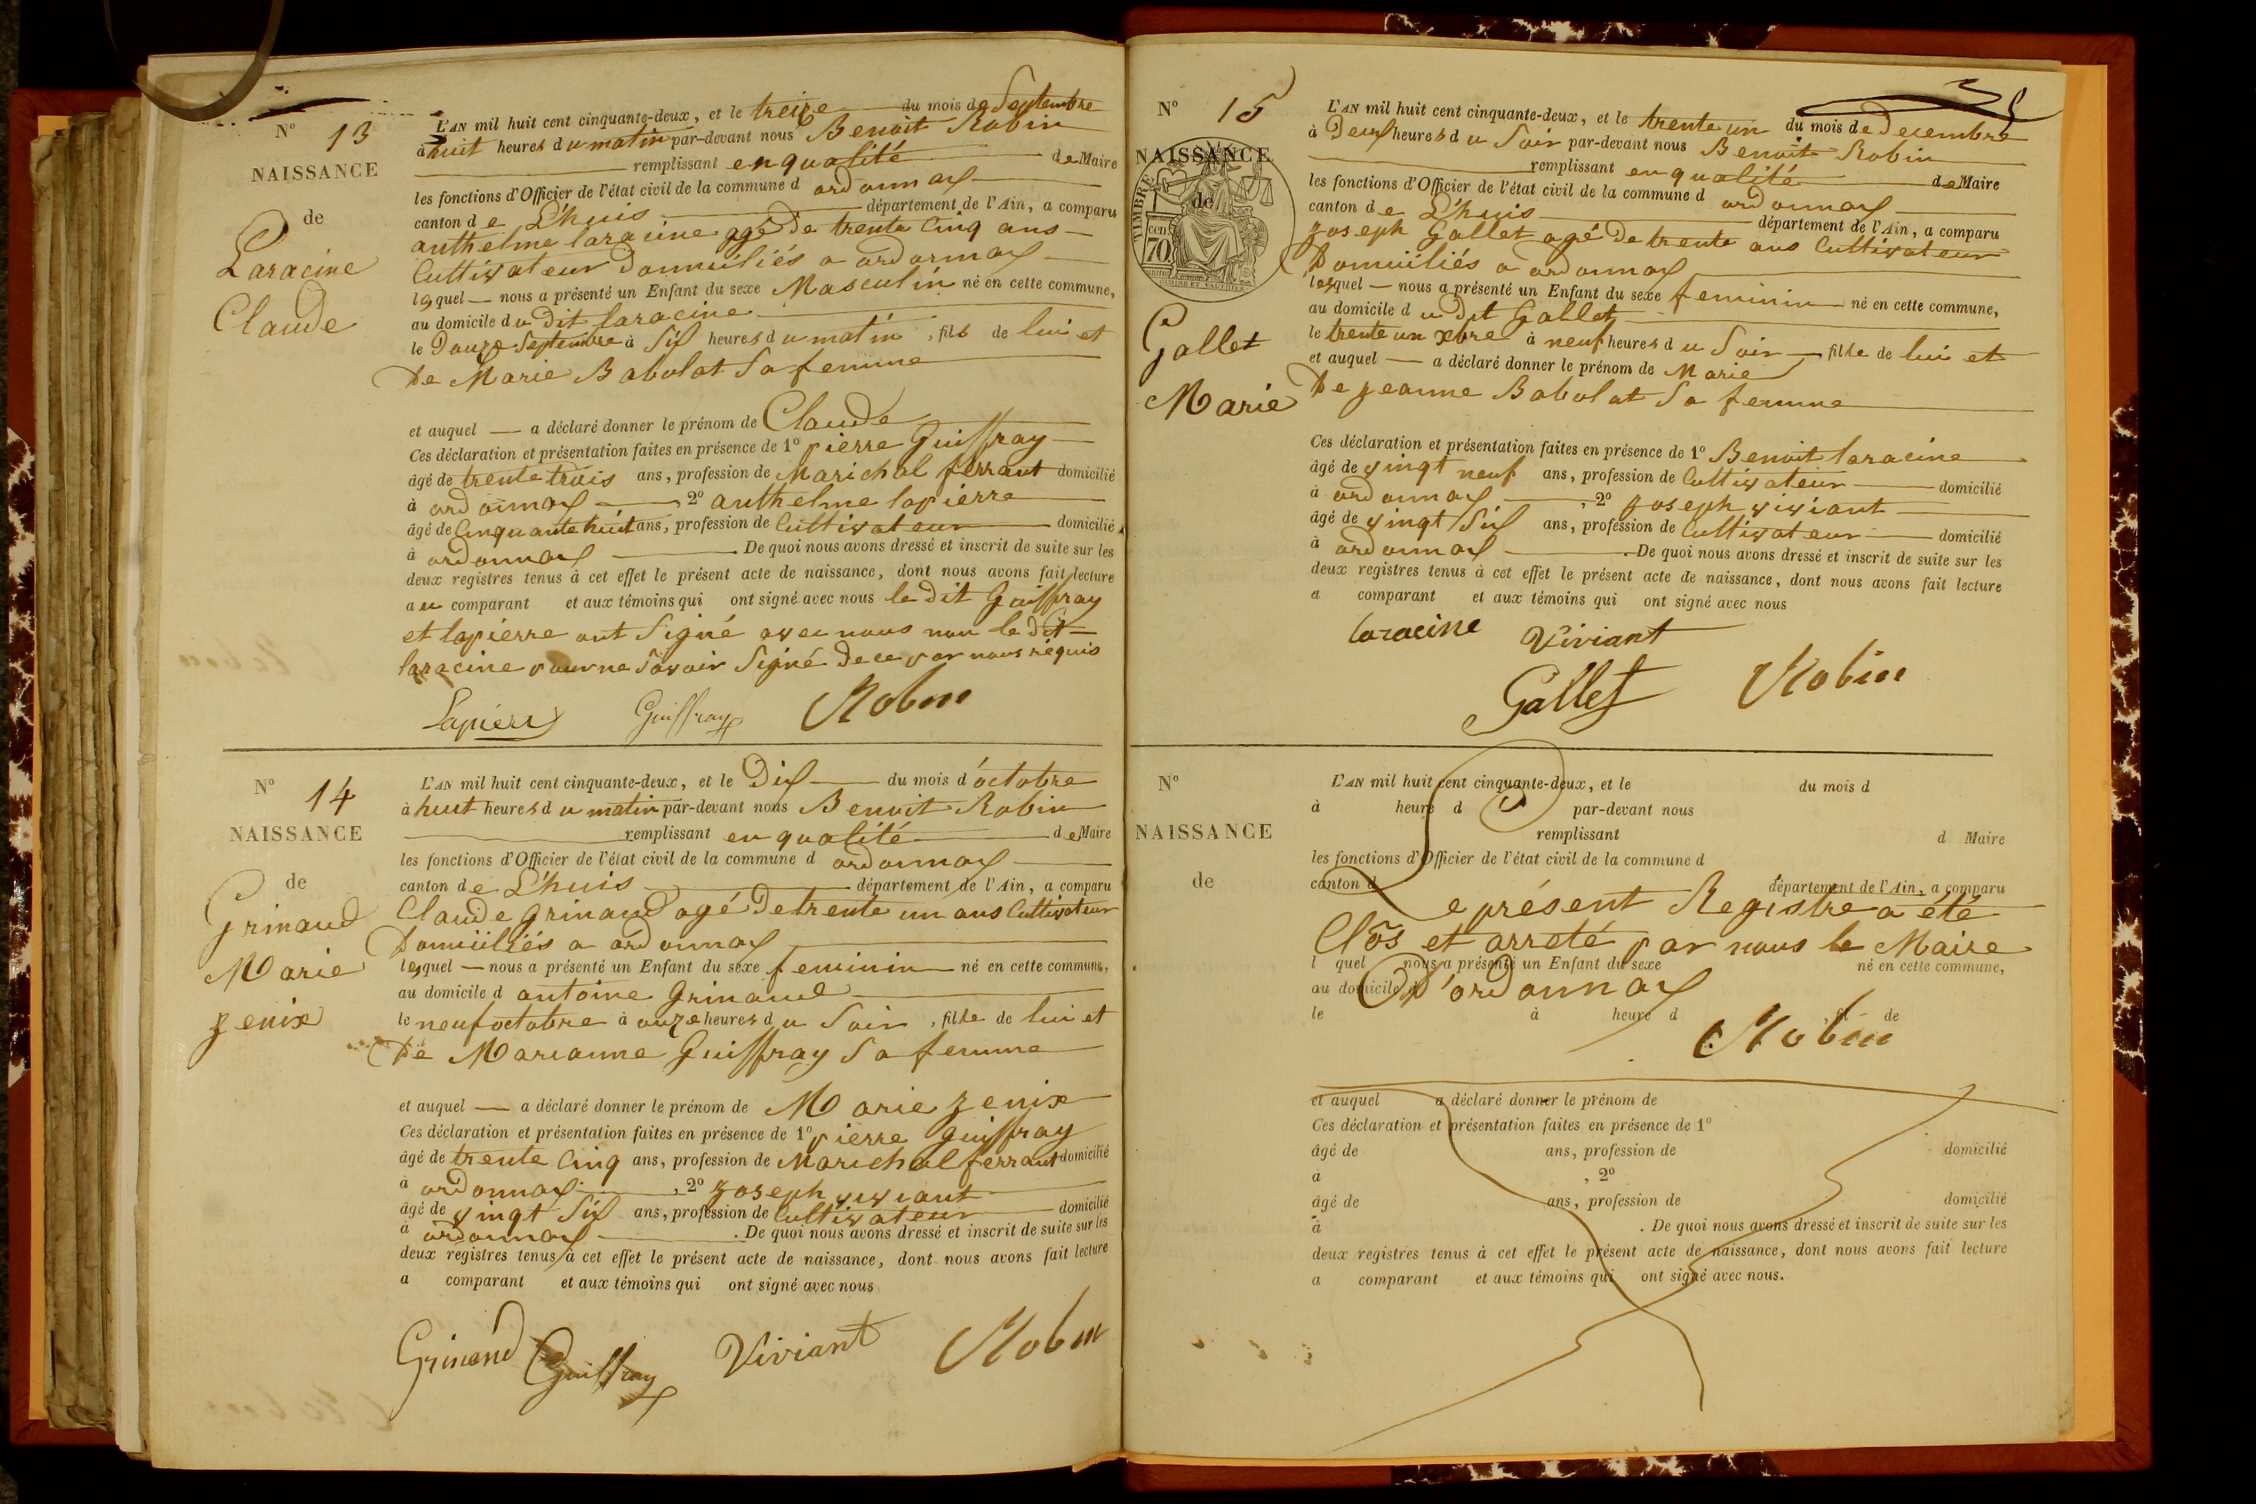 N° 13
NAISSANCE
de
Laracine
Claude
L'AN mil huit cent cinquante-deux, et le treize du mois de Septembre
à huit heures du matin par-devant nous Benoit Robin
remplissant en qualité de Maire
les fonctions d'Officier de l'état civil de la commune d ordonnax
canton de L'huis département de l'Ain, a comparu
anthelme laracine agé de trente Cinq ans
Cultivateur Domiciliés a ordonnax
lequel nous a présenté un Enfant du sexe Masculin né en cette commune,
au domicile du dit laracine
le Douze Septembre à Six heures du matin, fils de lui et
De Marie Babolat Sa femme
et auquel a déclaré donner le prénom de Claude
Ces déclaration et présentation faites en présence de 1° pierre Guiffray
âgé de trente trois ans, profession de Marichal ferrant domicilié
à ordonnax 2° anthelme lapierre
âgé de Cinquante huit ans, profession de Cultivateur domicilié
à ordonnax . De quoi nous avons dressé et inscrit de suite sur les
deux registres tenus à cet effet le présent acte de naissance, dont nous avons fait lecture
au comparant et aux témoins qui ont signé avec nous le dit Guiffray
et lapierre ont Signé avec nous non le dit
laracine pour ne Savoir Signé de ce par nous réquis
Lapierre Guiffray Robin
N° 14
NAISSANCE
de
Grinand
Marie
zenix
L'AN mil huit cent cinquante-deux, et le Dix du mois d'octobre
à huit heures du matin par-devant nous Benoit Robin
remplissant en qualité de Maire
les fonctions d'Officier de l'état civil de la commune d ordonnax
canton de L'huis département de l'Ain, a comparu
Claude Grinand agé de trente un ans Cultivateur
Domiciliés a ordonnax
lequel nous a présenté un Enfant du sexe feminin né en cette commune,
au domicile d antoine Grinand
le neuf octobre à onze heures du Soir, fille de lui et
De Marianne Guiffray Sa femme
et auquel a déclaré donner le prénom de Marie zenix
Ces déclaration et présentation faites en présence de 1° pierre Guiffray
âgé de trente Cinq ans, profession de Marichal ferrant domicilié
à ordonnax, 2° Joseph viviant
âgé de vingt Six ans, profession de Cultivateur domicilié
à ordonnax . De quoi nous avons dressé et inscrit de suite sur les
deux registres tenus à cet effet le présent acte de naissance, dont nous avons fait lecture
a comparant et aux témoins qui ont signé avec nous
Grinand Guiffray Viviant Robin
N° 15
NAISSANCE
de
TIMBRE
cen
70
Gallet
Marie
L'AN mil huit cent cinquante-deux, et le trente un du mois de Decembre
à Deux heures du Soir par-devant nous Benoit Robin
remplissant en qualité de Maire
les fonctions d'Officier de l'état civil de la commune d ordonnax
canton de L'huis département de l'Ain, a comparu
Joseph Gallet agé de trente ans Cultivateur
Domiciliés a ordonnax
lequel nous a présenté un Enfant du sexe feminin né en cette commune,
au domicile du dit Gallet
le trente un xbre à neuf heures du Soir fille de lui et
et auquel a déclaré donner le prénom de Marie
De Jeanne Babolat Sa femme
Ces déclaration et présentation faites en présence de 1° Benoit laracine
âgé de vingt neuf ans, profession de Cultivateur domicilié
à ordonnax, 2° Joseph viviant
âgé de vingt Six ans, profession de Cultivateur domicilié
à ordonnax . De quoi nous avons dressé et inscrit de suite sur les
deux registres tenus à cet effet le présent acte de naissance, dont nous avons fait lecture
a comparant et aux témoins qui ont signé avec nous
laracine Viviant
Gallet Robin
N°
NAISSANCE
de
L'AN mil huit cent cinquante-deux, et le du mois d
à heure d par-devant nous
remplissant d Maire
les fonctions d'Officier de l'état civil de la commune d
canton d département de l'Ain, a comparu
Le présent Registre a été
Clôs et arreté par nous le Maire
l quel nous a présenté un Enfant du sexe né en cette commune,
au domicile d
D'ordonnax
le à heure d , fil de
Robin
et auquel a déclaré donner le prénom de
Ces déclaration et présentation faites en présence de 1°
âgé de ans, profession de domicilié
à , 2°
âgé de ans, profession de domicilié
à . De quoi nous avons dressé et inscrit de suite sur les
deux registres tenus à cet effet le présent acte de naissance, dont nous avons fait lecture
a comparant et aux témoins qui ont signé avec nous.